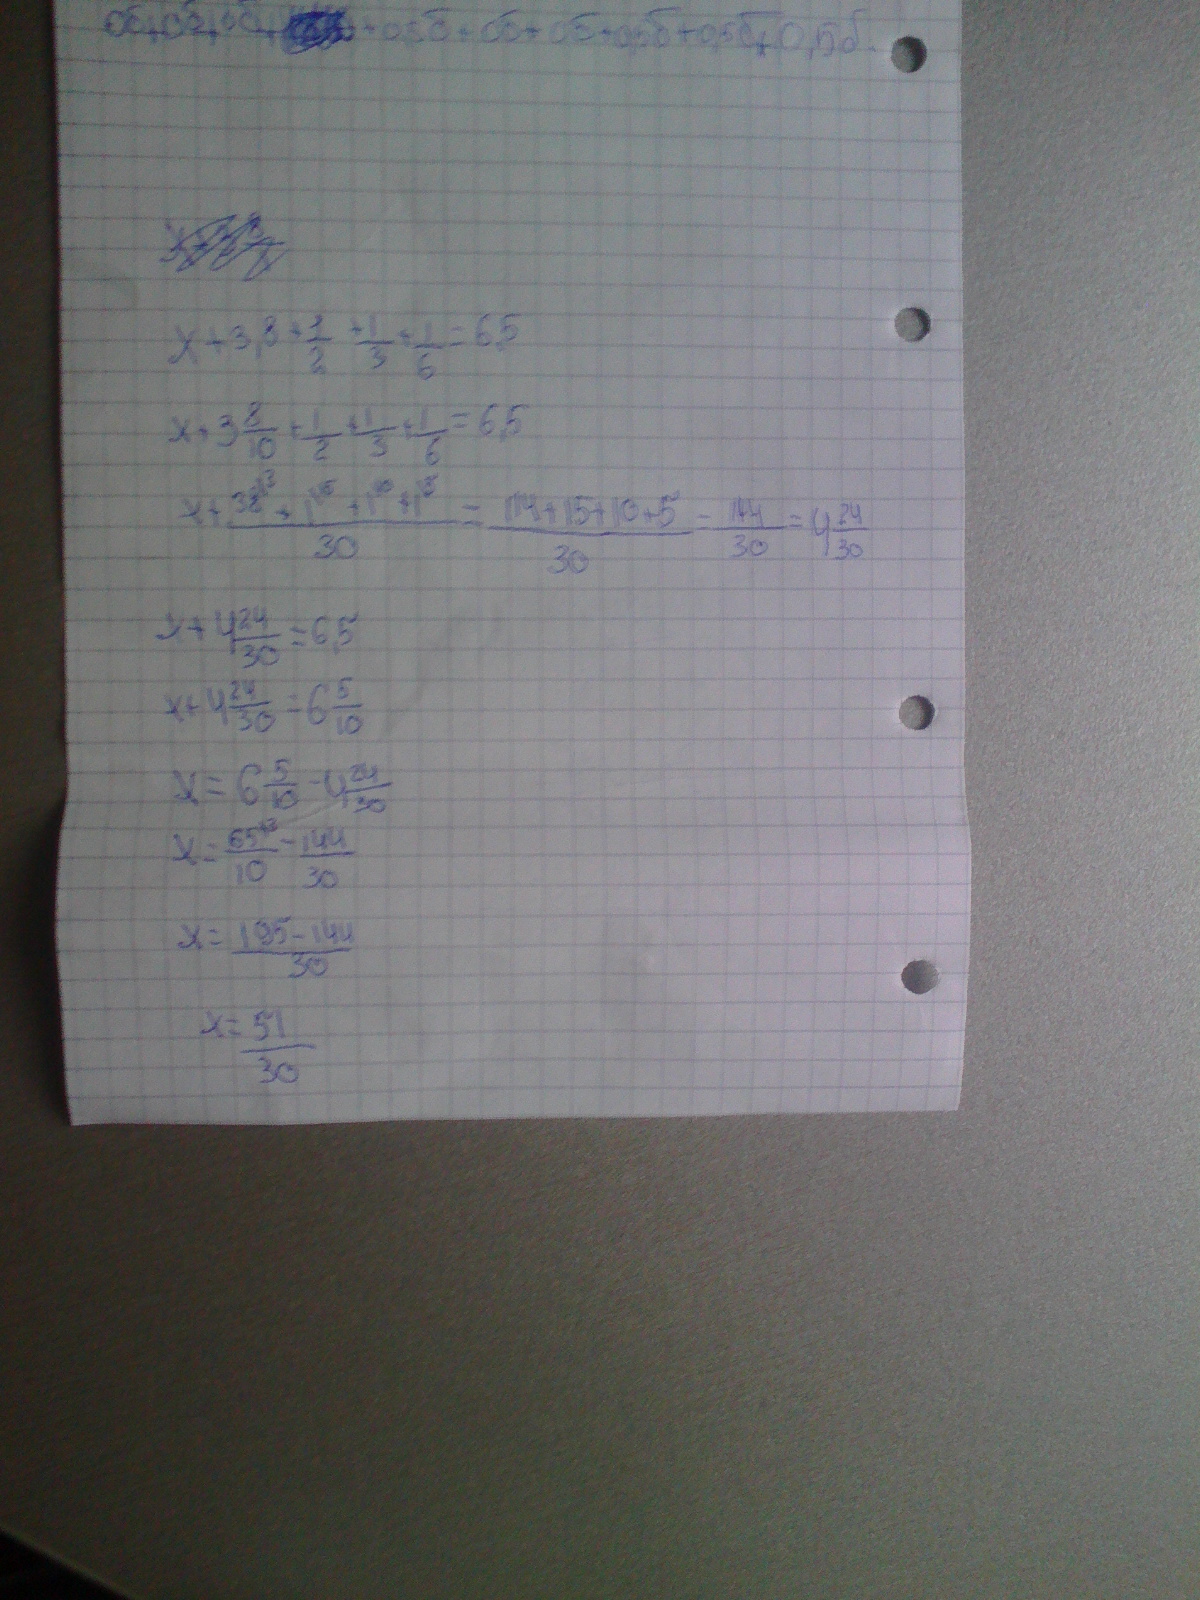 + 0,5б + 0б + 0б + 0,5б + 0,5б + 0,5б.
x + 3,8 + 1/2 + 1/3 + 1/6 = 6,5
x + 3 8/10 + 1/2 + 1/3 + 1/6 = 6,5
x + (38^(·3) + 1^(15) + 1^(10) + 1^(5))/30 = (114+15+10+5)/30 = 144/30 = 4 24/30
x + 4 24/30 = 6,5
x + 4 24/30 = 6 5/10
x = 6 5/10 - 4 24/30
x = 65^(·3)/10 - 144/30
x = (195-144)/30
x = 51/30